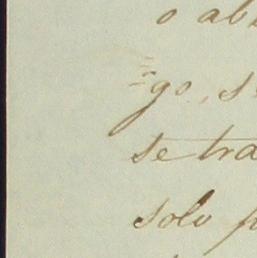 o ab
=go, s
se tra
solo p